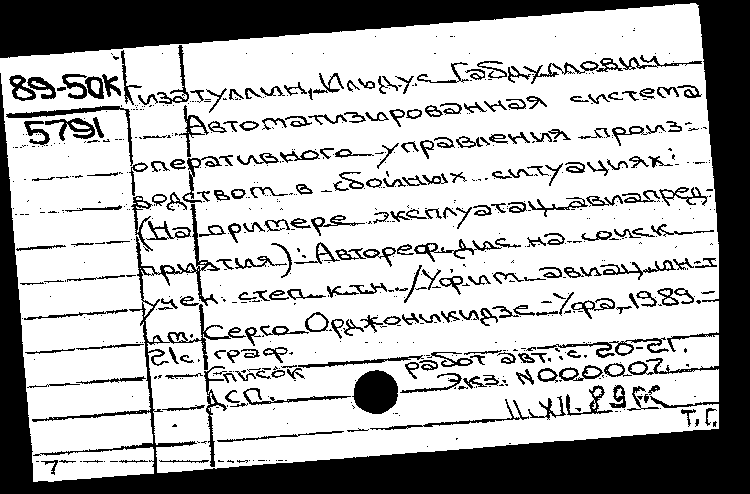 89-50к
5791
Гизатуллин, Ильдус Габдуллович
Автоматизированная система
оперативного управления произ-
водством в сбойных ситуациях:
(На примере эксплуатац. авиапред-
приятия): Автореф. дис. на соиск.
учен. степ. к.т.н. /Уфим. авиац. ин-т
им. Серго Орджоникидзе.-Уфа, 1989.-
21с. граф.
Список работ авт.: с. 20-21.
ДСП. Экз. N000007.
11.XII.89
Т.Г.